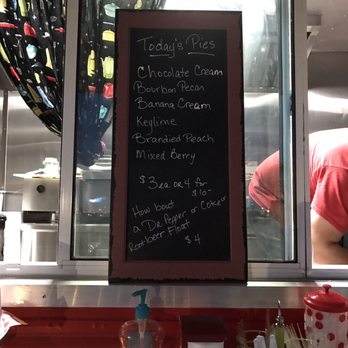 Today's Pies
Chocolate Cream
Bourbon Pecan
Banana Cream
Keylime
Brandied Peach
Mixed Berry
$3ea or 4 for
$10-
How bout
a Dr. Pepper or Coke or
Rootbeer Float
$4